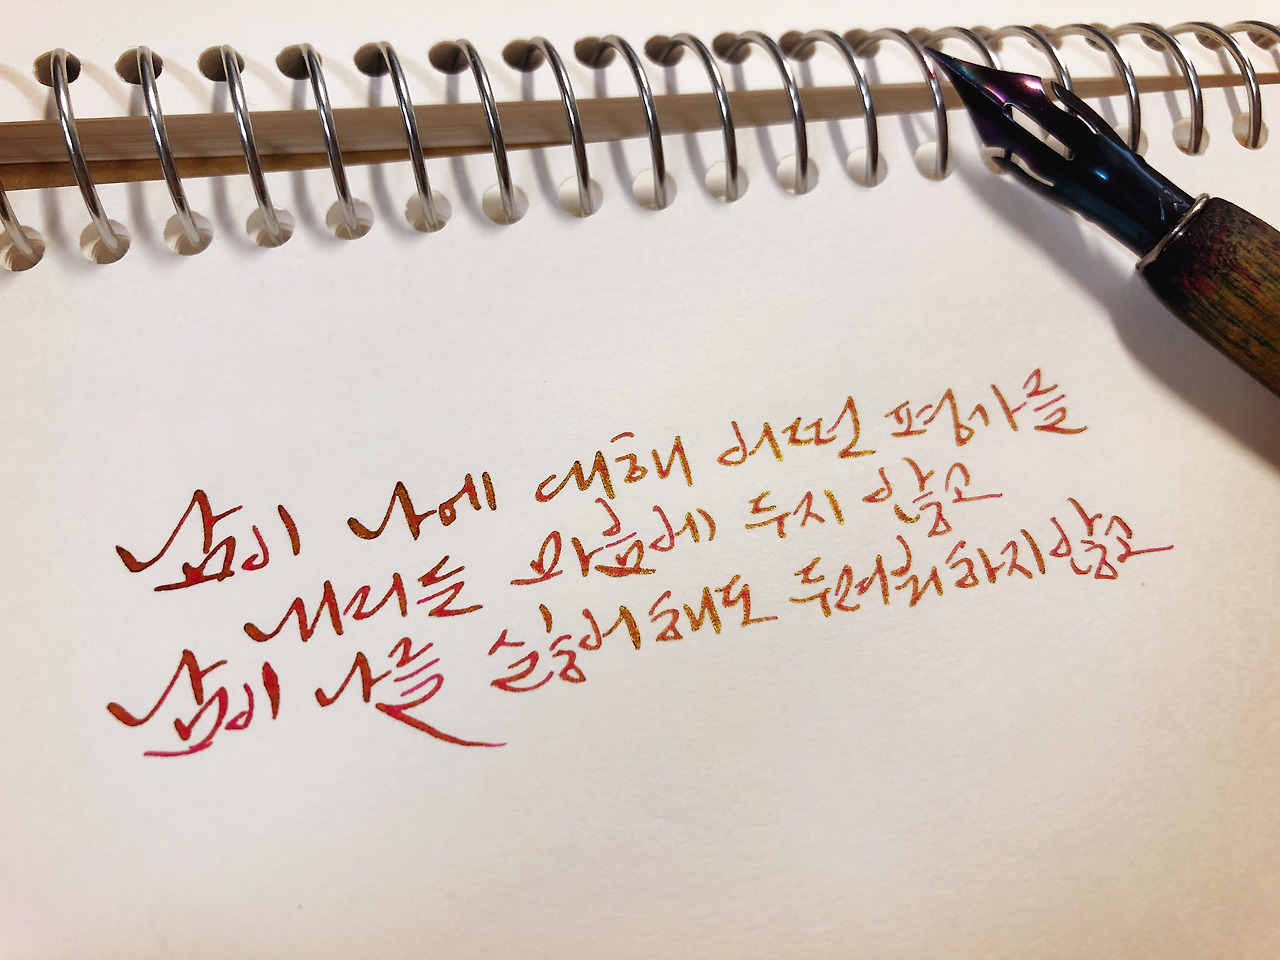 남이 나에 대해 어떤 평가를
내리든 마음에 두지 않고
남이 나를 싫어해도 두려워하지않고